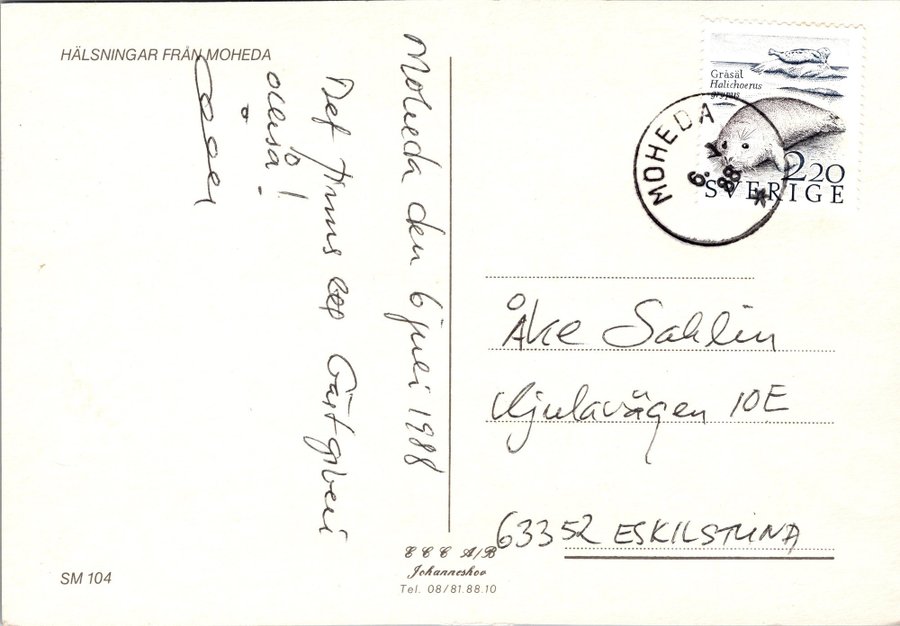 HÄLSNINGAR FRÅN MOHEDA
Moheda den 6 juli 1988
Det finns ett Gästgiveri
också!
Gråsäl
Halichoerus
grypus
2.20
SVERIGE
MOHEDA
6. 88
Åke Sahlin
Kjulavägen 10E
63352 ESKILSTUNA
E C C A/B
Johanneshov
Tel. 08/81.88.10
SM 104